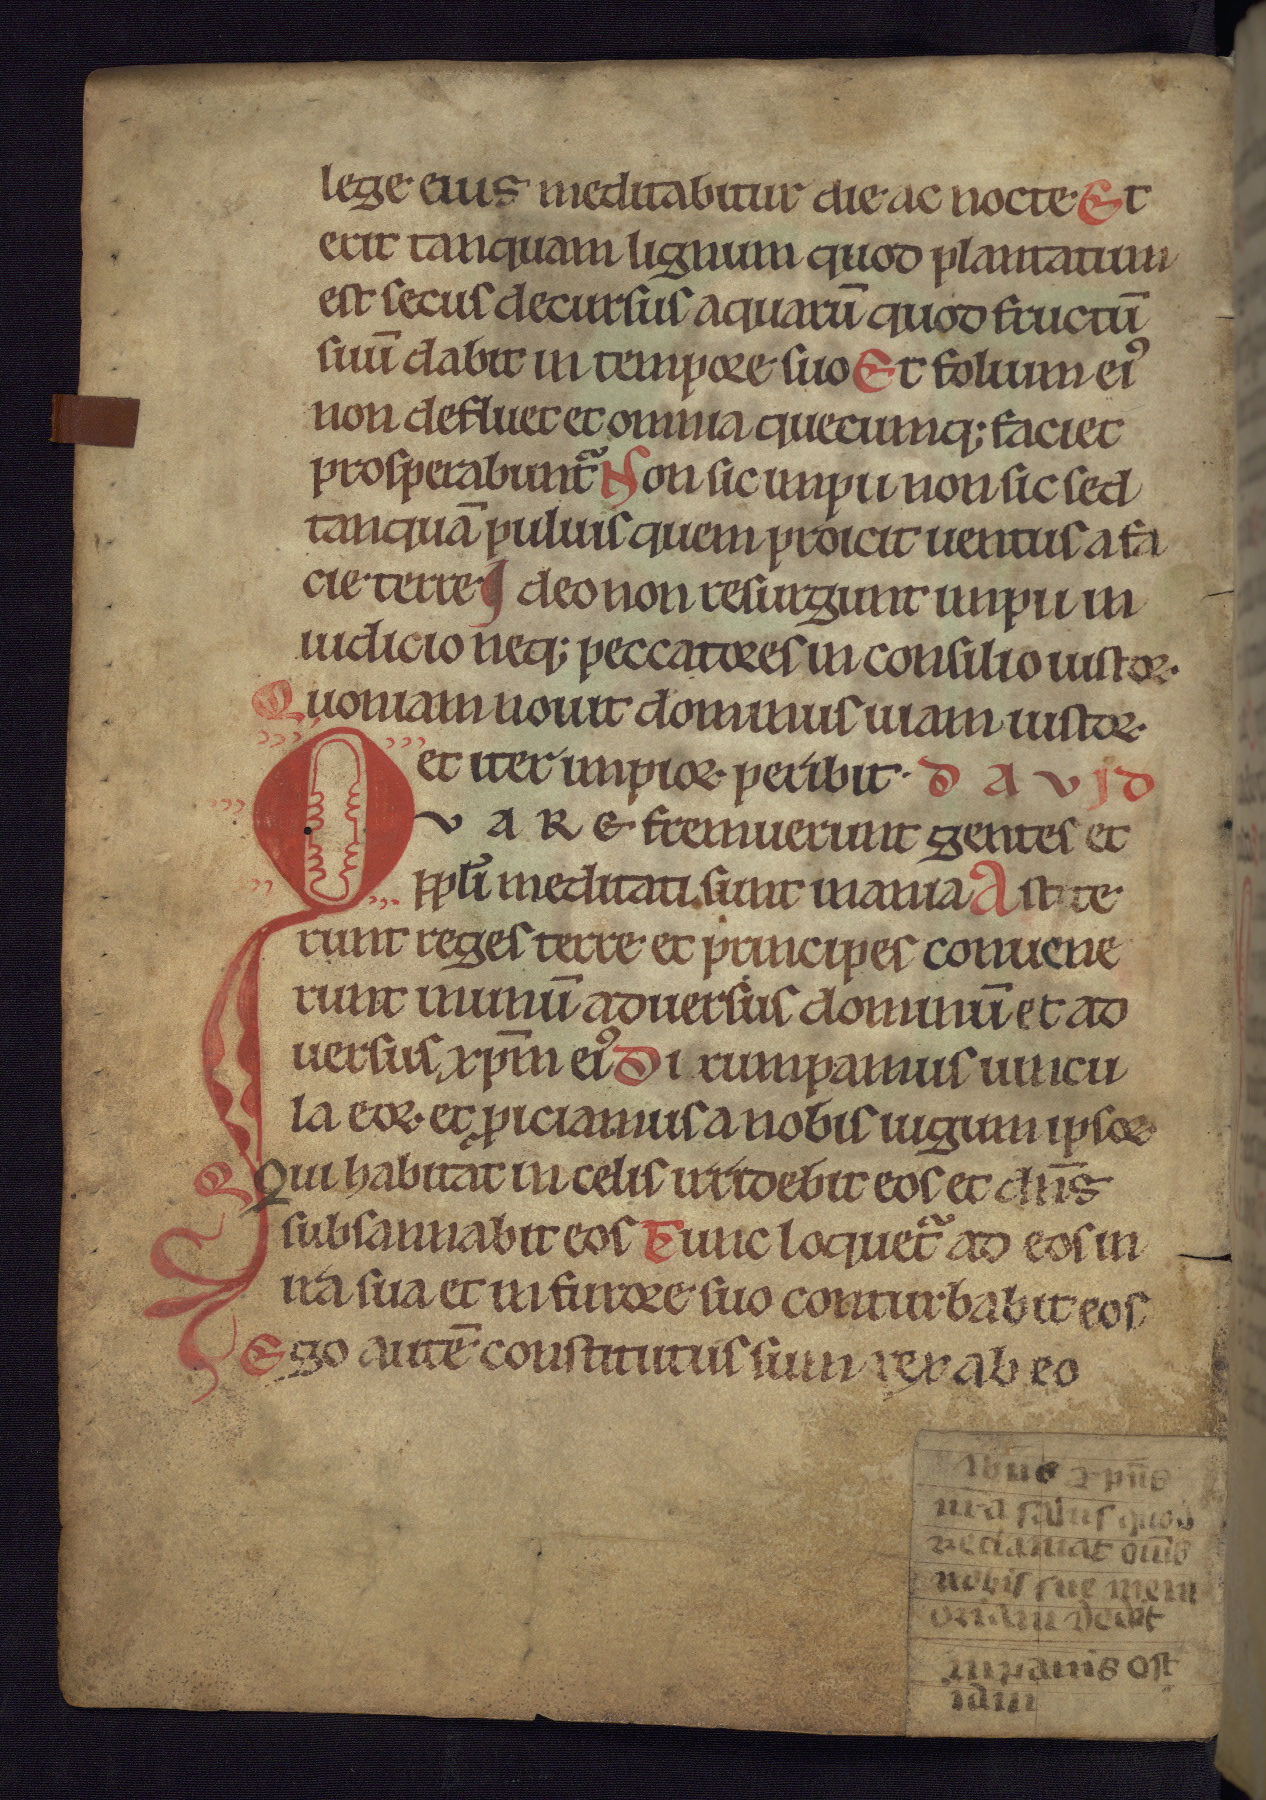 lege eius meditabitur die ac nocte Et
erit tanquam lignum quod plantatum
est secus decursus aquarū quod fructū
suū dabit in tempore suo Et folium eiꝰ
non defluet et omnia quecumq; faciet
prosperabunt᷑ Non sic impii non sic sed
tanquā puluis quem proicit uentus a fa
cie terre Ideo non resurgunt impii in
iudicio neq; peccatores in consilio iustoꝝ
Quoniam nouit dominus uiam iustoꝝ
et iter impioꝝ peribit· DAVID
QVARE fremuerunt gentes et
ppl̄i meditati sunt inania Astite
runt reges terre et principes conuene
runt inunū aduersus dominū et ad
uersus xp̄m eiꝰ Dirumpamus uincu
la eoꝝ et ꝓiciamus a nobis iugum ipsoꝝ
Qui habitat in celis irridebit eos et dn̄s
subsannabit eos Tunc loquet᷑ ad eos in
ira sua et in furore suo conturbabit eos
Ego autē constitutus sum rex ab eo
salus quod
nobis sue mem
oriam dedit